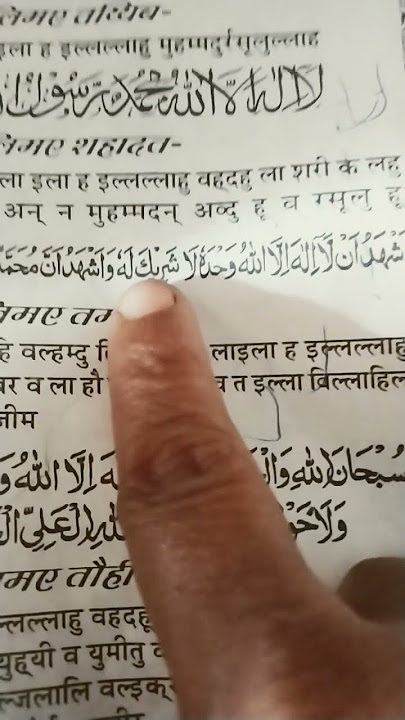 लिमए तय्यिब-
इला ह इल्लल्लाहु मुहम्मदुर्रसूलुल्लाह
لَا اِلٰهَ اِلَّا اللهُ مُحَمَّدٌ رَّسُوْلُ
लिमए शहादत-
ला इला ह इल्लल्लाहु वहदहु ला शरी क लहु
अन् न मुहम्मदन् अब्दु हू व रसूलु हू
شْهَدُ اَنْ لَّا اِلٰهَ اِلَّا اللهُ وَحْدَهٗ لَا شَرِيْكَ لَهٗ وَاَشْهَدُ اَنَّ مُحَمَّ
लिमए तम
हि वल्हम्दु लाइला ह इल्लल्लाहु
बर व ला हौ व त इल्ला बिल्लाहिल
जीम
سُبْحَانَ اللهِ وَالْ هَ اِلَّا اللهُ وَ
وَلَا حَوْ اللهِ الْعَلِيِّ الْ
मए तौही
ल्लल्लाहु वहदहू
युह्यी व युमीतु व
ल्जलालि वल्इक्